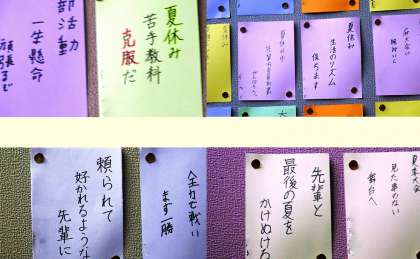 部活動
一生懸命
頑張るぞ
夏休み
苦手教科
克服だ
夏休み
生活のリズム
保ちます
頼られて
好かれるような
先輩に
全力で戦い
まず一勝
先輩と
最後の夏を
かけぬける
夏季大会
見た事のない
舞台へ